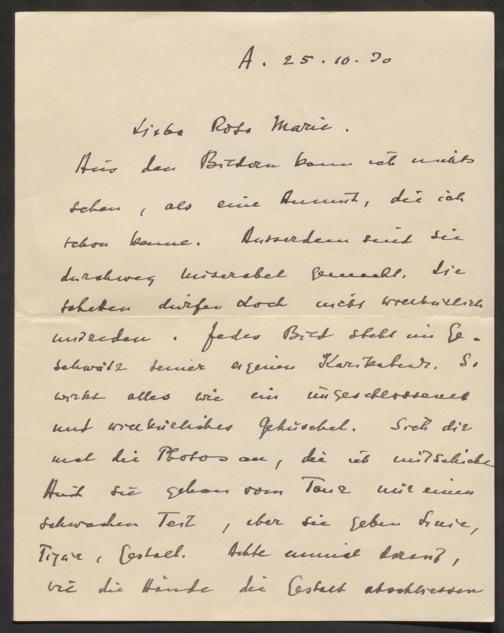 A. 25.10.30
Liebe Rosa Marie.
Aus den Bildern kann ich nichts
sehen, als eine Anmut, die ich
schon kenne. Ausserdem sind sie
durchweg miserabel gemacht. Die
dürfen doch nicht willkürlich
. Jedes Bild steht im Ge-
schwätz seiner eigenen Karikatur. So
wirkt alles wie ein ungeschlossenes
und willkürliches Gehuschel. Sieh dir
mal die Photos an, die ich mitschicke
Auch sie geben vom Tanz nur einen
schwachen Teil, aber sie geben Linie,
Figur, Gestalt. Achte einmal darauf,
wie die Hände die Gestalt abschliessen